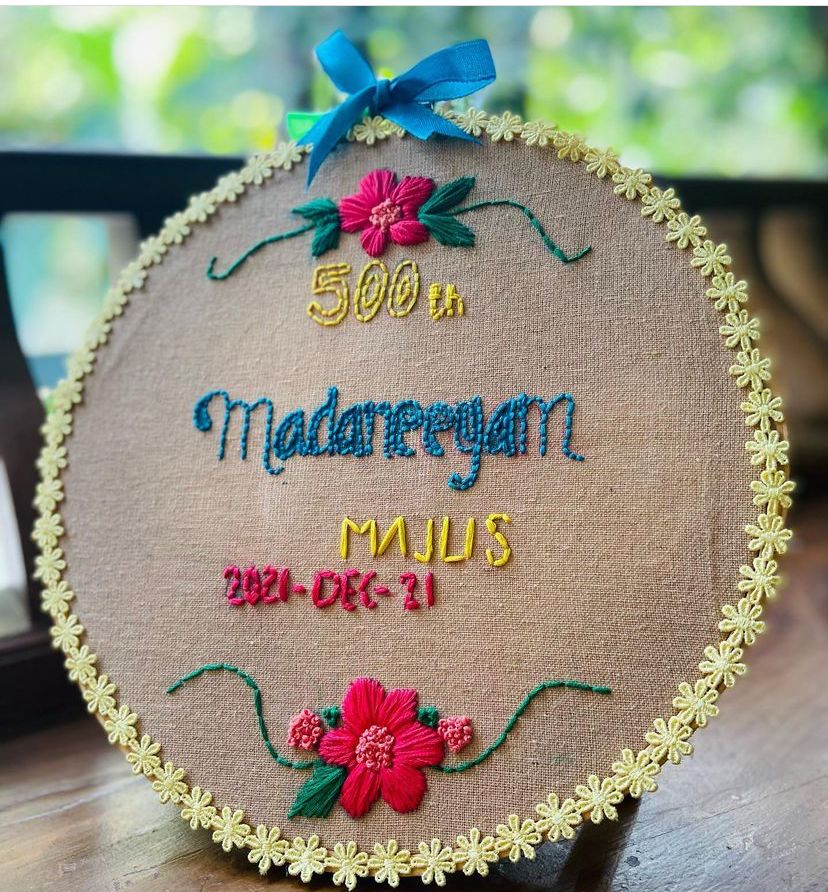 500th
Madaneeyam
MAJLIS
2021-DEC-21